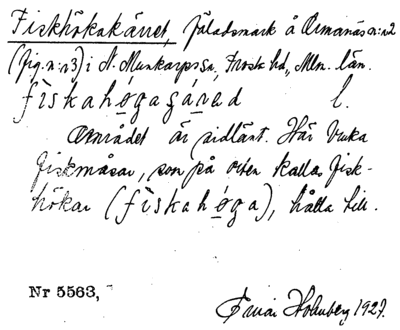 Fiskhökakärret, fäladsmark å Ormanäs n:r 2
(fig. n:r 3) i N. Munkarps sn, Frosta hd, Mlm. län.
fiskahøgagárəd l.
Området är sidlänt. Här bruka
fiskmåsar, som på orten kallas fisk-
hökar (fiskahøga), hålla till.
Nr 5563,
Einar Holmberg 1927.